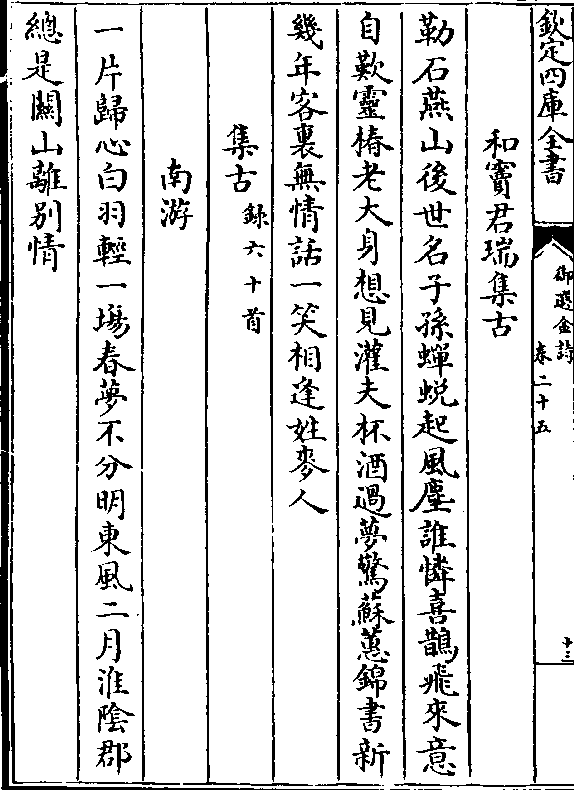 欽定四庫全書
御選金詩
卷二十五
十三
和竇君瑞集古
勒石燕山後世名子孫蟬蛻起風塵誰憐喜鵲飛來意
自歎靈椿老大身想見灌夫杯酒過夢驚蘇蕙錦書新
幾年客裏無情話一笑相逢姓麥人
集古錄六十首
南游
一片歸心白羽輕一場春夢不分明東風二月淮陰郡
總是關山離別情